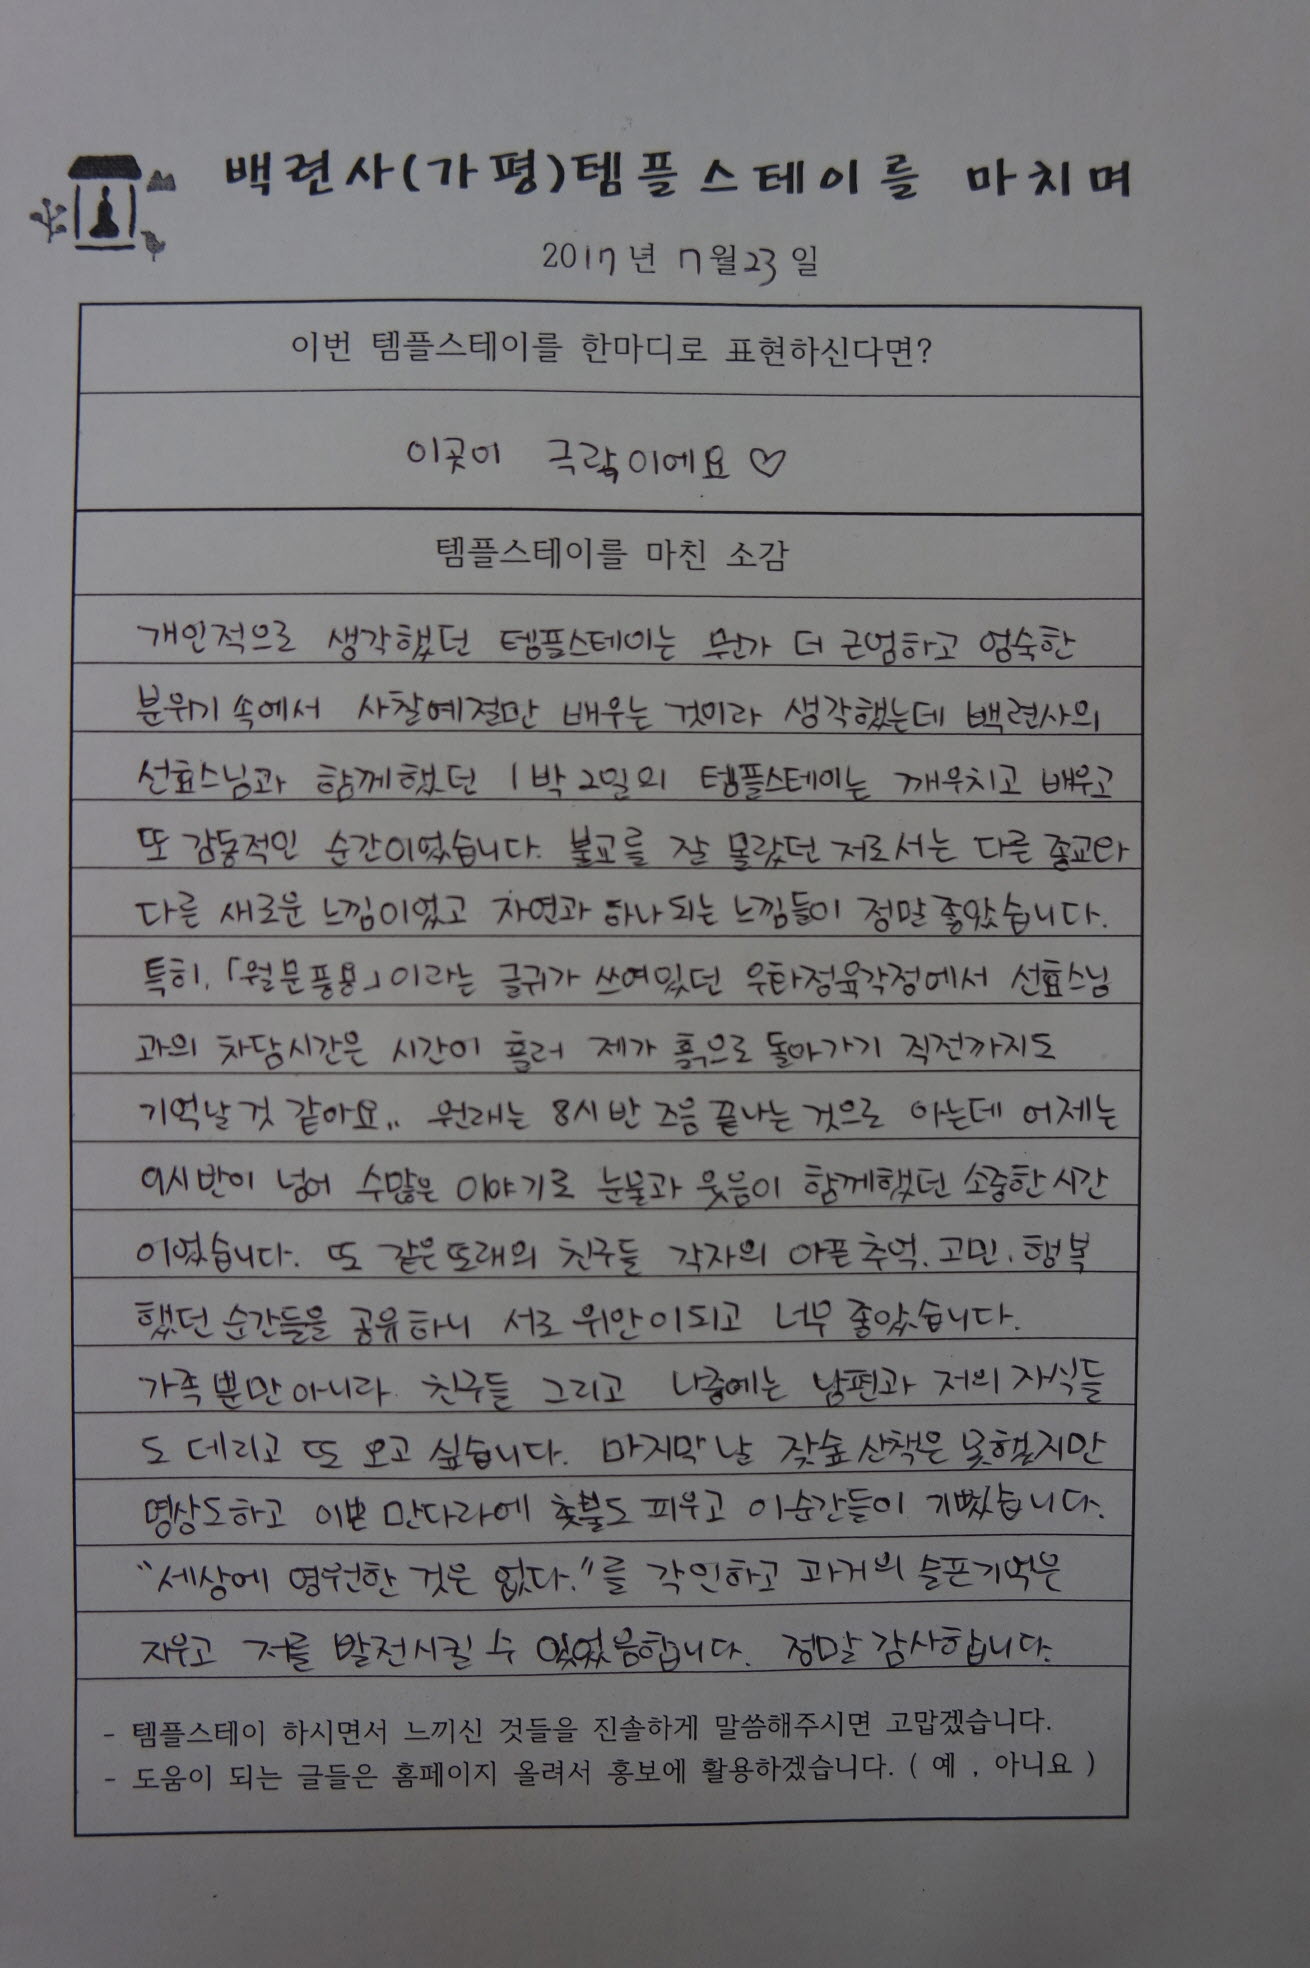 백련사(가평)템플스테이를 마치며
2017년 7월23일
이번 템플스테이를 한마디로 표현하신다면?
이곳이 극락이에요 ♡
템플스테이를 마친 소감
개인적으로 생각했던 템플스테이는 뭔가 더 근엄하고 엄숙한
분위기 속에서 사찰예절만 배우는 것이라 생각했는데 백련사의
선효스님과 함께했던 1박 2일의 템플스테이는 깨우치고 배우고
또 감동적인 순간이었습니다. 불교를 잘 몰랐던 저로서는 다른 종교와
다른 새로운 느낌이었고 자연과 하나되는 느낌들이 정말 좋았습니다.
특히, 「월문풍용」이라는 글귀가 쓰여있던 우화정육각정에서 선효스님
과의 차담시간은 시간이 흘러 제가 흙으로 돌아가기 직전까지도
기억날것 같아요.. 원래는 8시 반 즈음 끝나는 것으로 아는데 어제는
9시반이 넘어 수많은 이야기로 눈물과 웃음이 함께했던 소중한 시간
이었습니다. 또 같은또래의 친구들 각자의 아픈 추억, 고민, 행복
했던 순간들을 공유하니 서로 위안이되고 너무 좋았습니다.
가족뿐만 아니라 친구들 그리고 나중에는 남편과 저의 자식들
도 데리고 또 오고 싶습니다. 마지막 날 잣숲 산책은 못했지만
명상도하고 이쁜 만다라에 촛불도 피우고 이순간들이 기뻤습니다.
"세상에 영원한 것은 없다."를 각인하고 과거의 슬픈기억은
지우고 저를 발전시킬 수 있었음합니다. 정말 감사합니다.
- 템플스테이 하시면서 느끼신 것들을 진솔하게 말씀해주시면 고맙겠습니다.
- 도움이 되는 글들은 홈페이지 올려서 홍보에 활용하겠습니다. ( 예 , 아니요 )